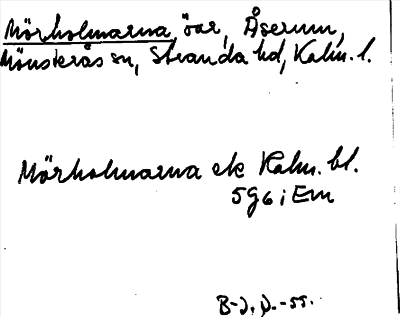 Mörholmarna, öar, Åserum,
Mönsterås sn, Stranda hd, Kalm. l.
Mörholmarna ek Kalm. bl.
5g6i Em
B-J. D. -55.